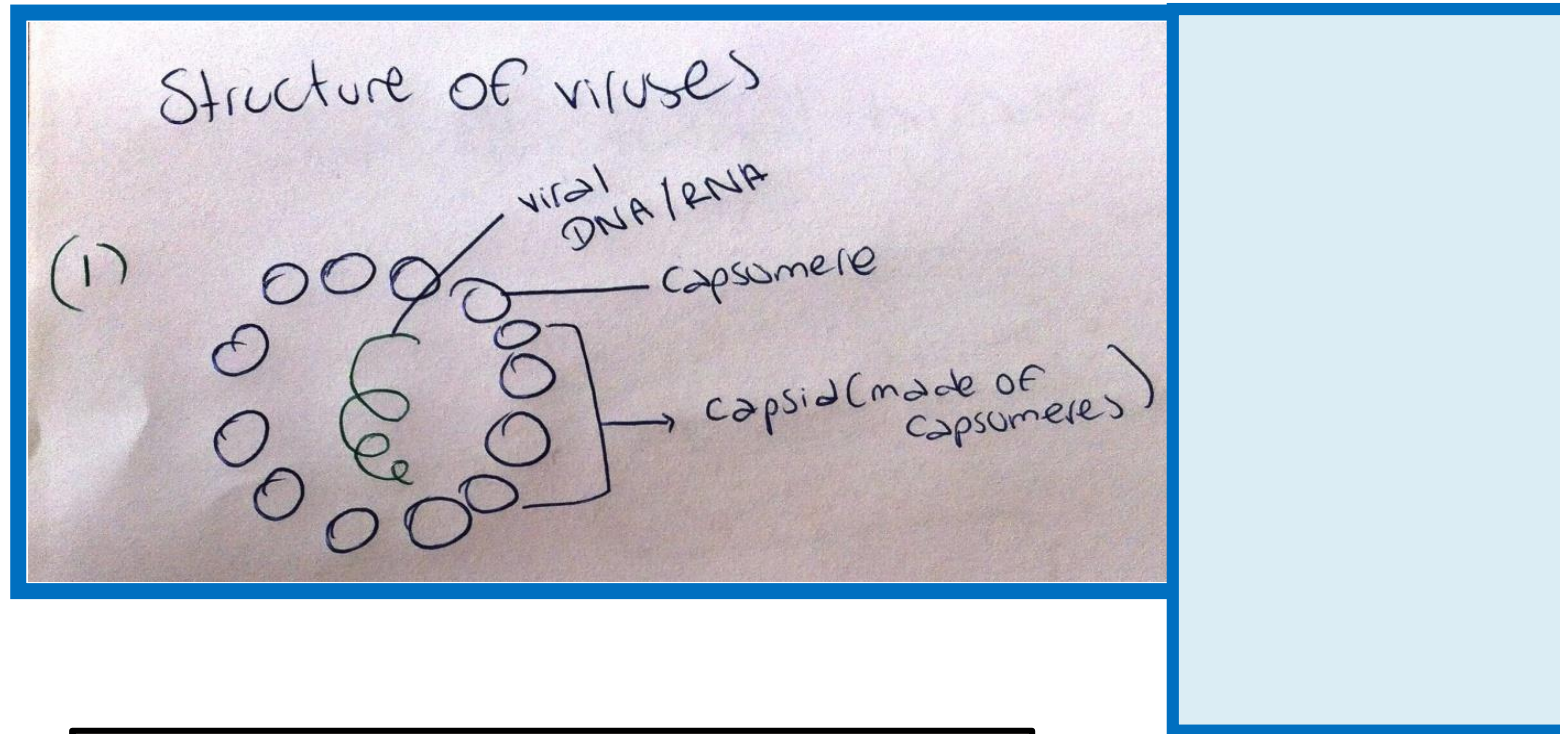 Structure of viruses
viral
DNA/RNA
(1)
Capsomere
Capsid (made of
capsomeres)